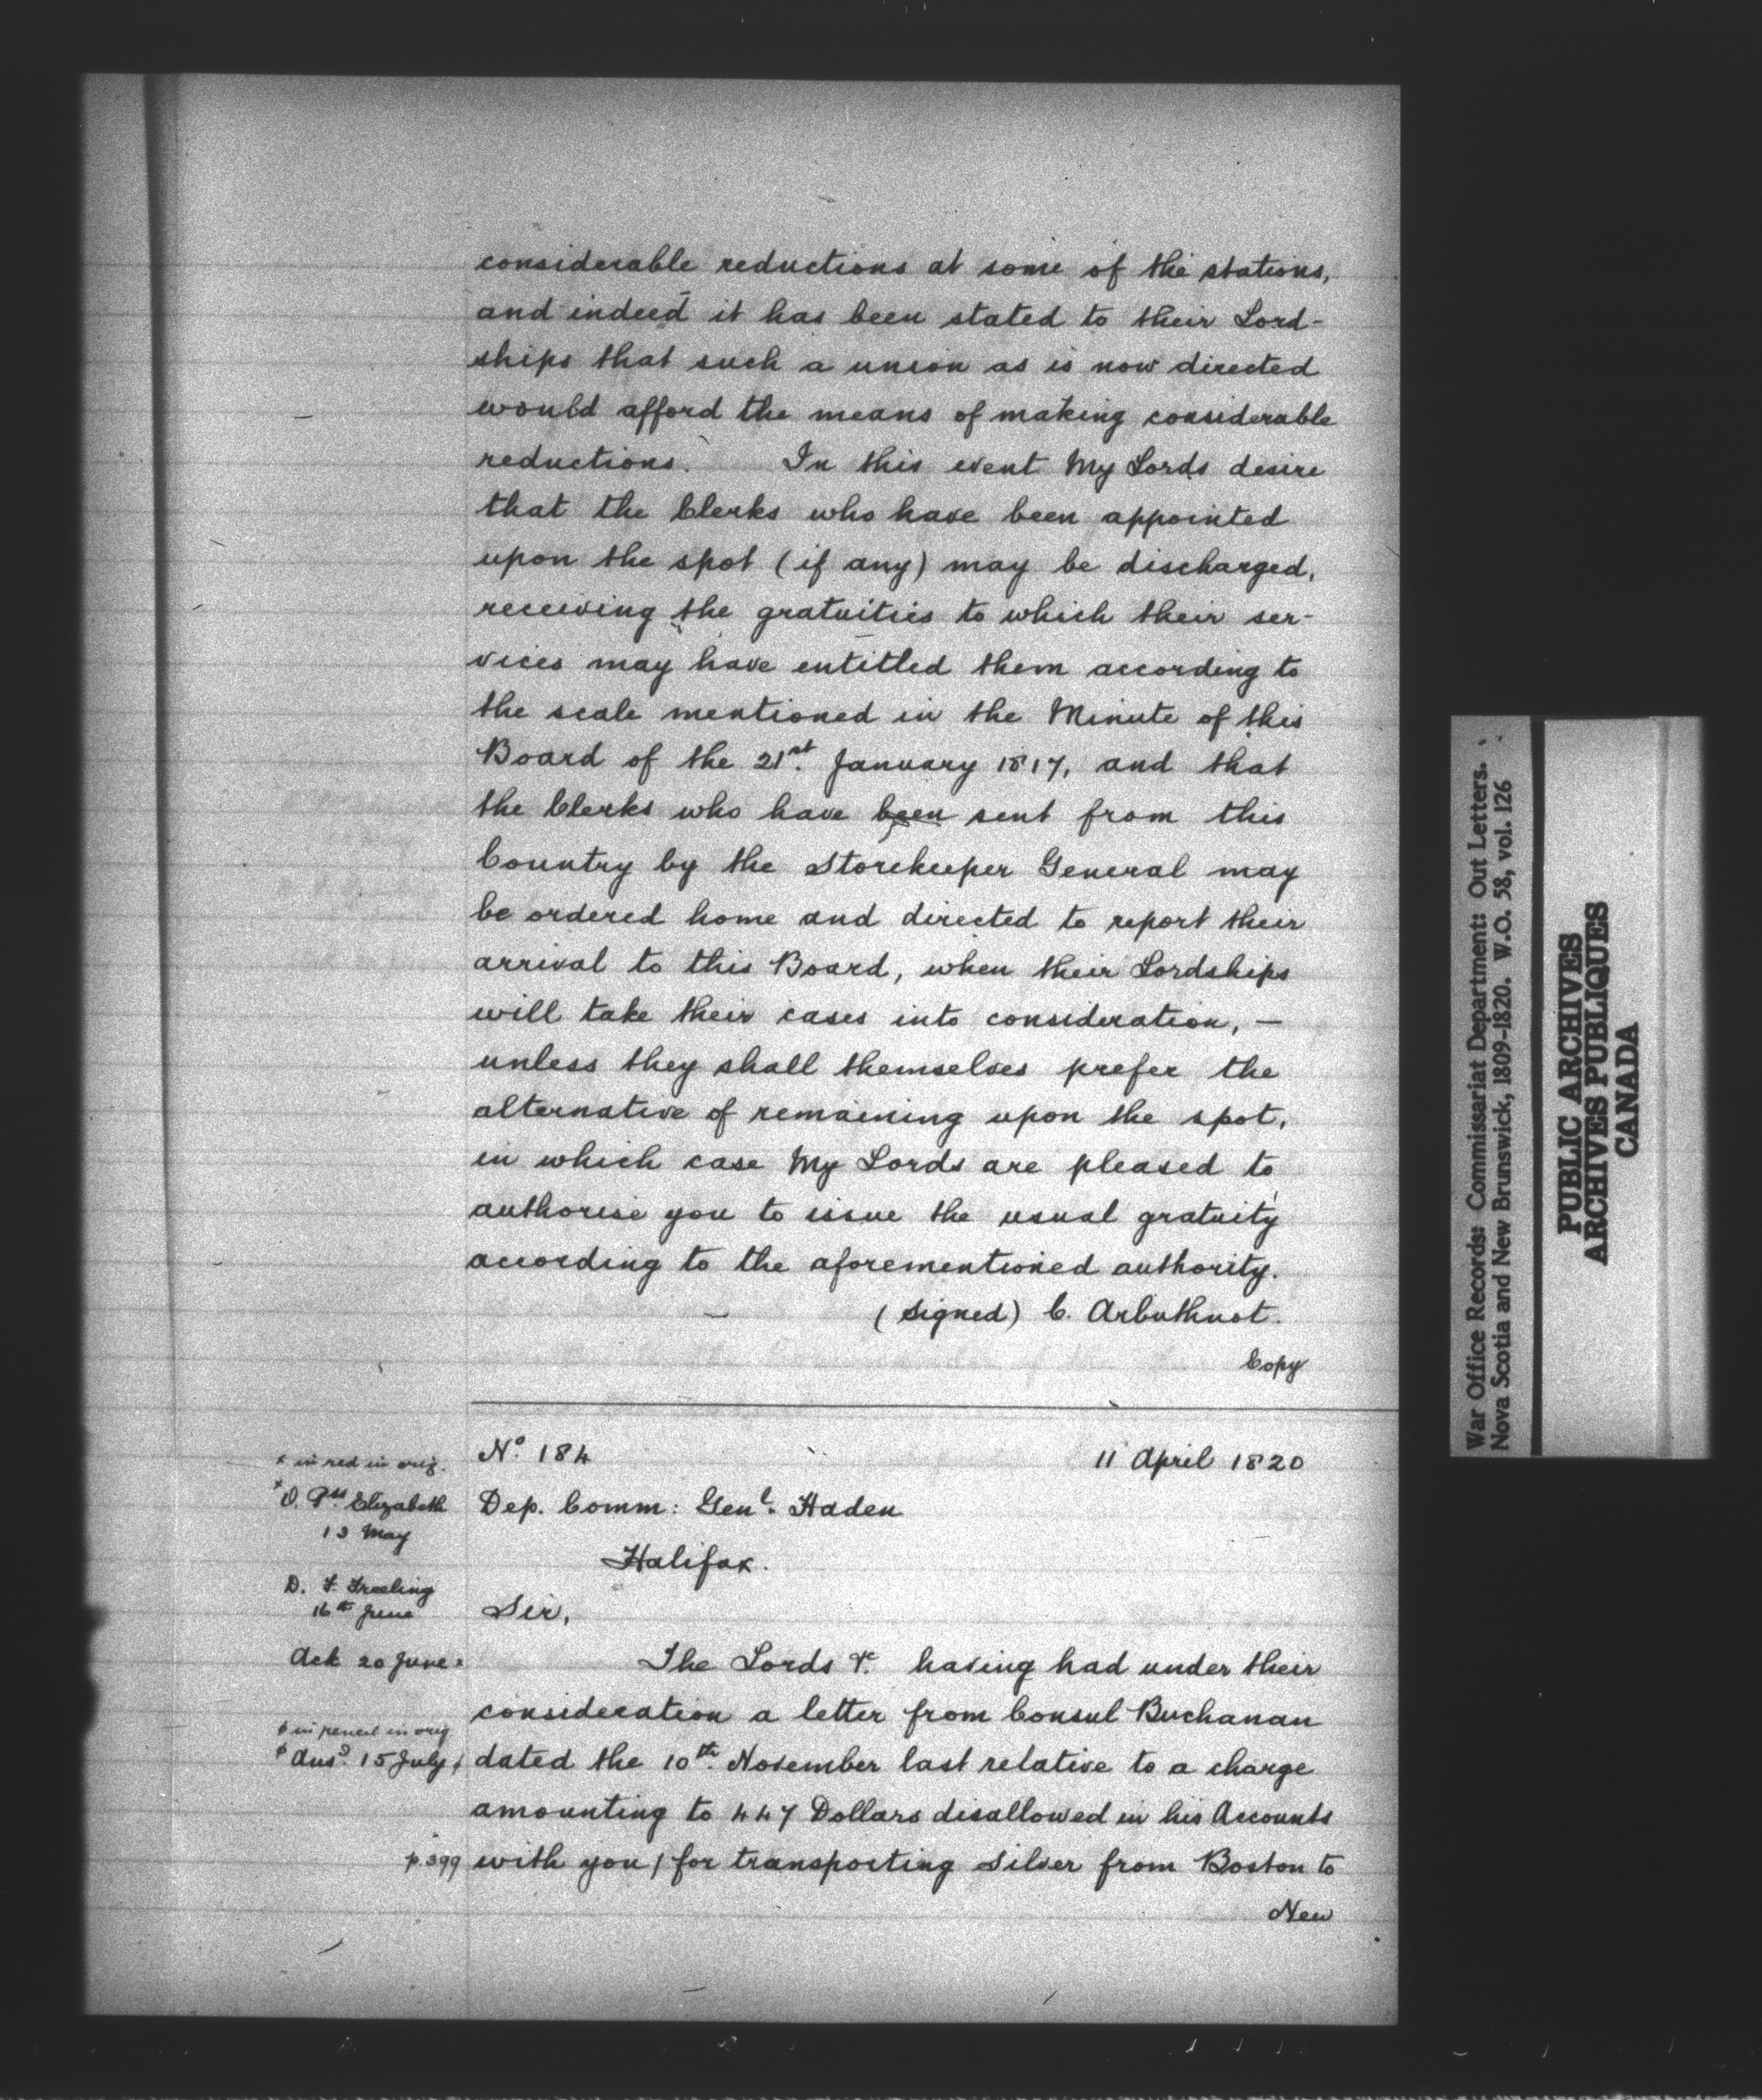 considerable reductions at some of the stations,
and indeed it has been stated to their Lord-
ships that such a union as is now directed
would afford the means of making considerable
reductions. In this event My Lords desire
that the Clerks who have been appointed
upon the spot (if any) may be discharged,
receiving the gratuities to which their ser-
vices may have entitled them according to
the scale mentioned in the Minute of this
Board of the 21st. January 1817, and that
the Clerks who have been sent from this
Country by the Storekeeper General may
be ordered home and directed to report their
arrival to this Board, when their Lordships
will take their cases into consideration, —
unless they shall themselves prefer the
alternative of remaining upon the spot,
in which case My Lords are pleased to
authorise you to issue the usual gratuity
according to the aforementioned authority.
(Signed) C. Arbuthnot.
Copy
No. 184 11 April 1820
x in red in orig.
x O. Pss Elizabeth
13 May
Dep. Comm: Genl. Haden
Halifax.
D. F. Freeling
16th June
Sir,
Ack 20 June x
The Lords &c. having had under their
consideration a letter from Consul Buchanan
ϕ in pencil in orig
ϕ Ansd. 15 July ϕ
dated the 10th. November last relative to a charge
amounting to 447 Dollars disallowed in his Accounts
p. 399
with you / for transporting Silver from Boston to
New
War Office Records: Commissariat Department: Out Letters.
Nova Scotia and New Brunswick, 1809-1820. W.O. 58, vol. 126
PUBLIC ARCHIVES
ARCHIVES PUBLIQUES
CANADA